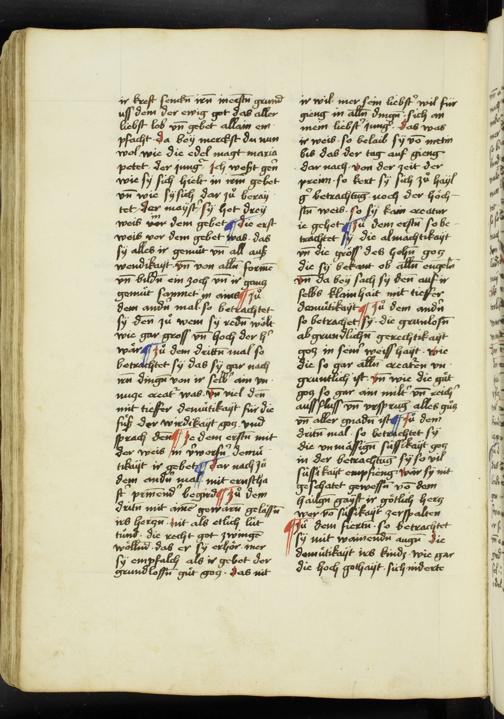 ir krefft sencken irn innersten grund
uss dem der ewig got das aller
liebst lob vn gebet allain em
pfacht da bey merckst du nun
wol wie die edel magt maria
petet der jung Ich west gern
wie sy sich hiebt in irm gebet
vn wie sy sich dar zu beray
tet der mayster sy het drey
weis vor dem gebet die erst
weis vor dem gebet was das
sy alles ir gemüt vn all auß
wendikayt vn von allen formen
vn bilden ein zoch vn ir gantz
gemüt samnet in ains Zu
dem andn mal so betrachtet
sy den zu wem sy reden wölt
wie gar gross vn hoch der her
wär zu dem driten mal so
betrachtet sy das sy gar nach
irn dingen von ir selb ain vn
nutze creat was vn viel den
mit tieffer demütikayt für die
füß der wirdikayt gotz vnd
sprach dem Ze dem ersten mit
der weis in inwerser demü
tikayt ir gebet dar nach zu
dem andn mal mit ernsthaf
ster prinender begird zu dem
driten mit aine gewaren gelassen
irs hertzen nit als etlich lüt
tund die recht got zwingen
wöllend das er sy erhör mer
sy empfalch als ir gebet der
grundlossen güt gotz das nit
ir wil mer sein liebster wil für
gieng in allen dingen sich an
mein liebster jung das was
ir weis so belaib sy vo metin
bis das der tag auf gieng
dar nach von der zeit der
preim so kert sy sich zu hayl
ger betrachtung noch der höch
sten weis so sy kain creatur
ie gehet zu dem ersten so be
trachtet sy die almachtikayt
vn die gröss des hohen gotz
die sy bekant ob allen engeln
vn da bey sach sy den auf ir
selbs klainhait mit tieffer
demütikayt zu dem andn
so betrachtet sy die grunlosen
abgrundlichen gerechtikayt
gotz in seiner weisshayt wie
die so gar allen createn vn
gruntlich ist vn wie die güt
gotz so gar ain milt vn reich
aussfluss vn ursprug alles gutz
vn aller gnaden ist zu dem
driten mal so betrachtet sy
die unmässigen süssikayt gotz
in der betrachtug sy so vil
süssikayt empfieng wär sy nit
geschatet gewessen vo dem
hailgen gayst ir götlich hertz
wer vo süssikayt zerspalten
zu dem fierten so betrachtet
sy mit wainenden augen die
demütikayt irs kindz wie gar
die hoch gothayt sich niderte